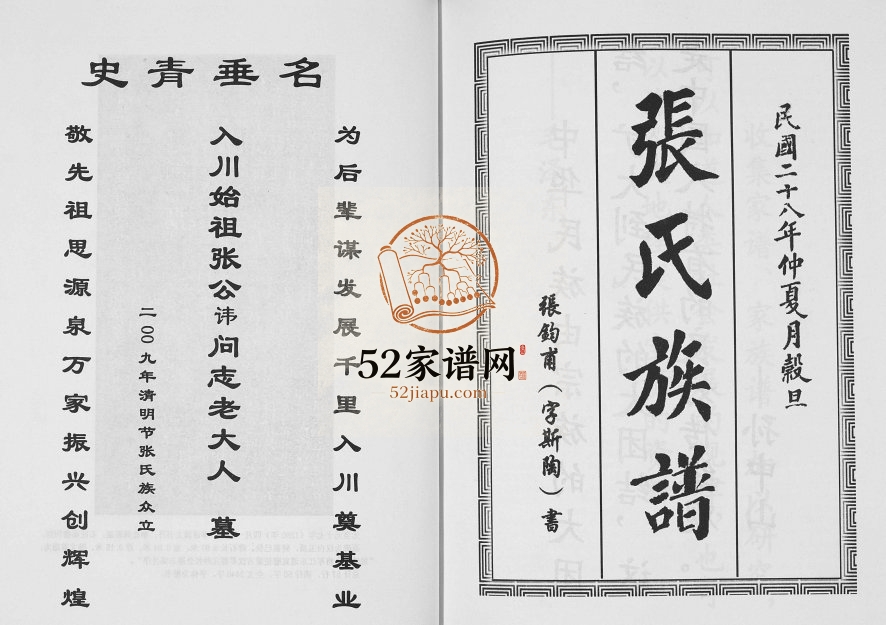 民國二十八年仲夏月穀旦
張氏族譜
張鈞甫（字斯陶）書
名垂青史
为后辈谋发展千里入川奠基业
入川始祖张公讳问志老大人 墓
二〇〇九年清明节张氏族众立
敬先祖思源泉万家振兴创辉煌
52家谱网
52jiapu.com